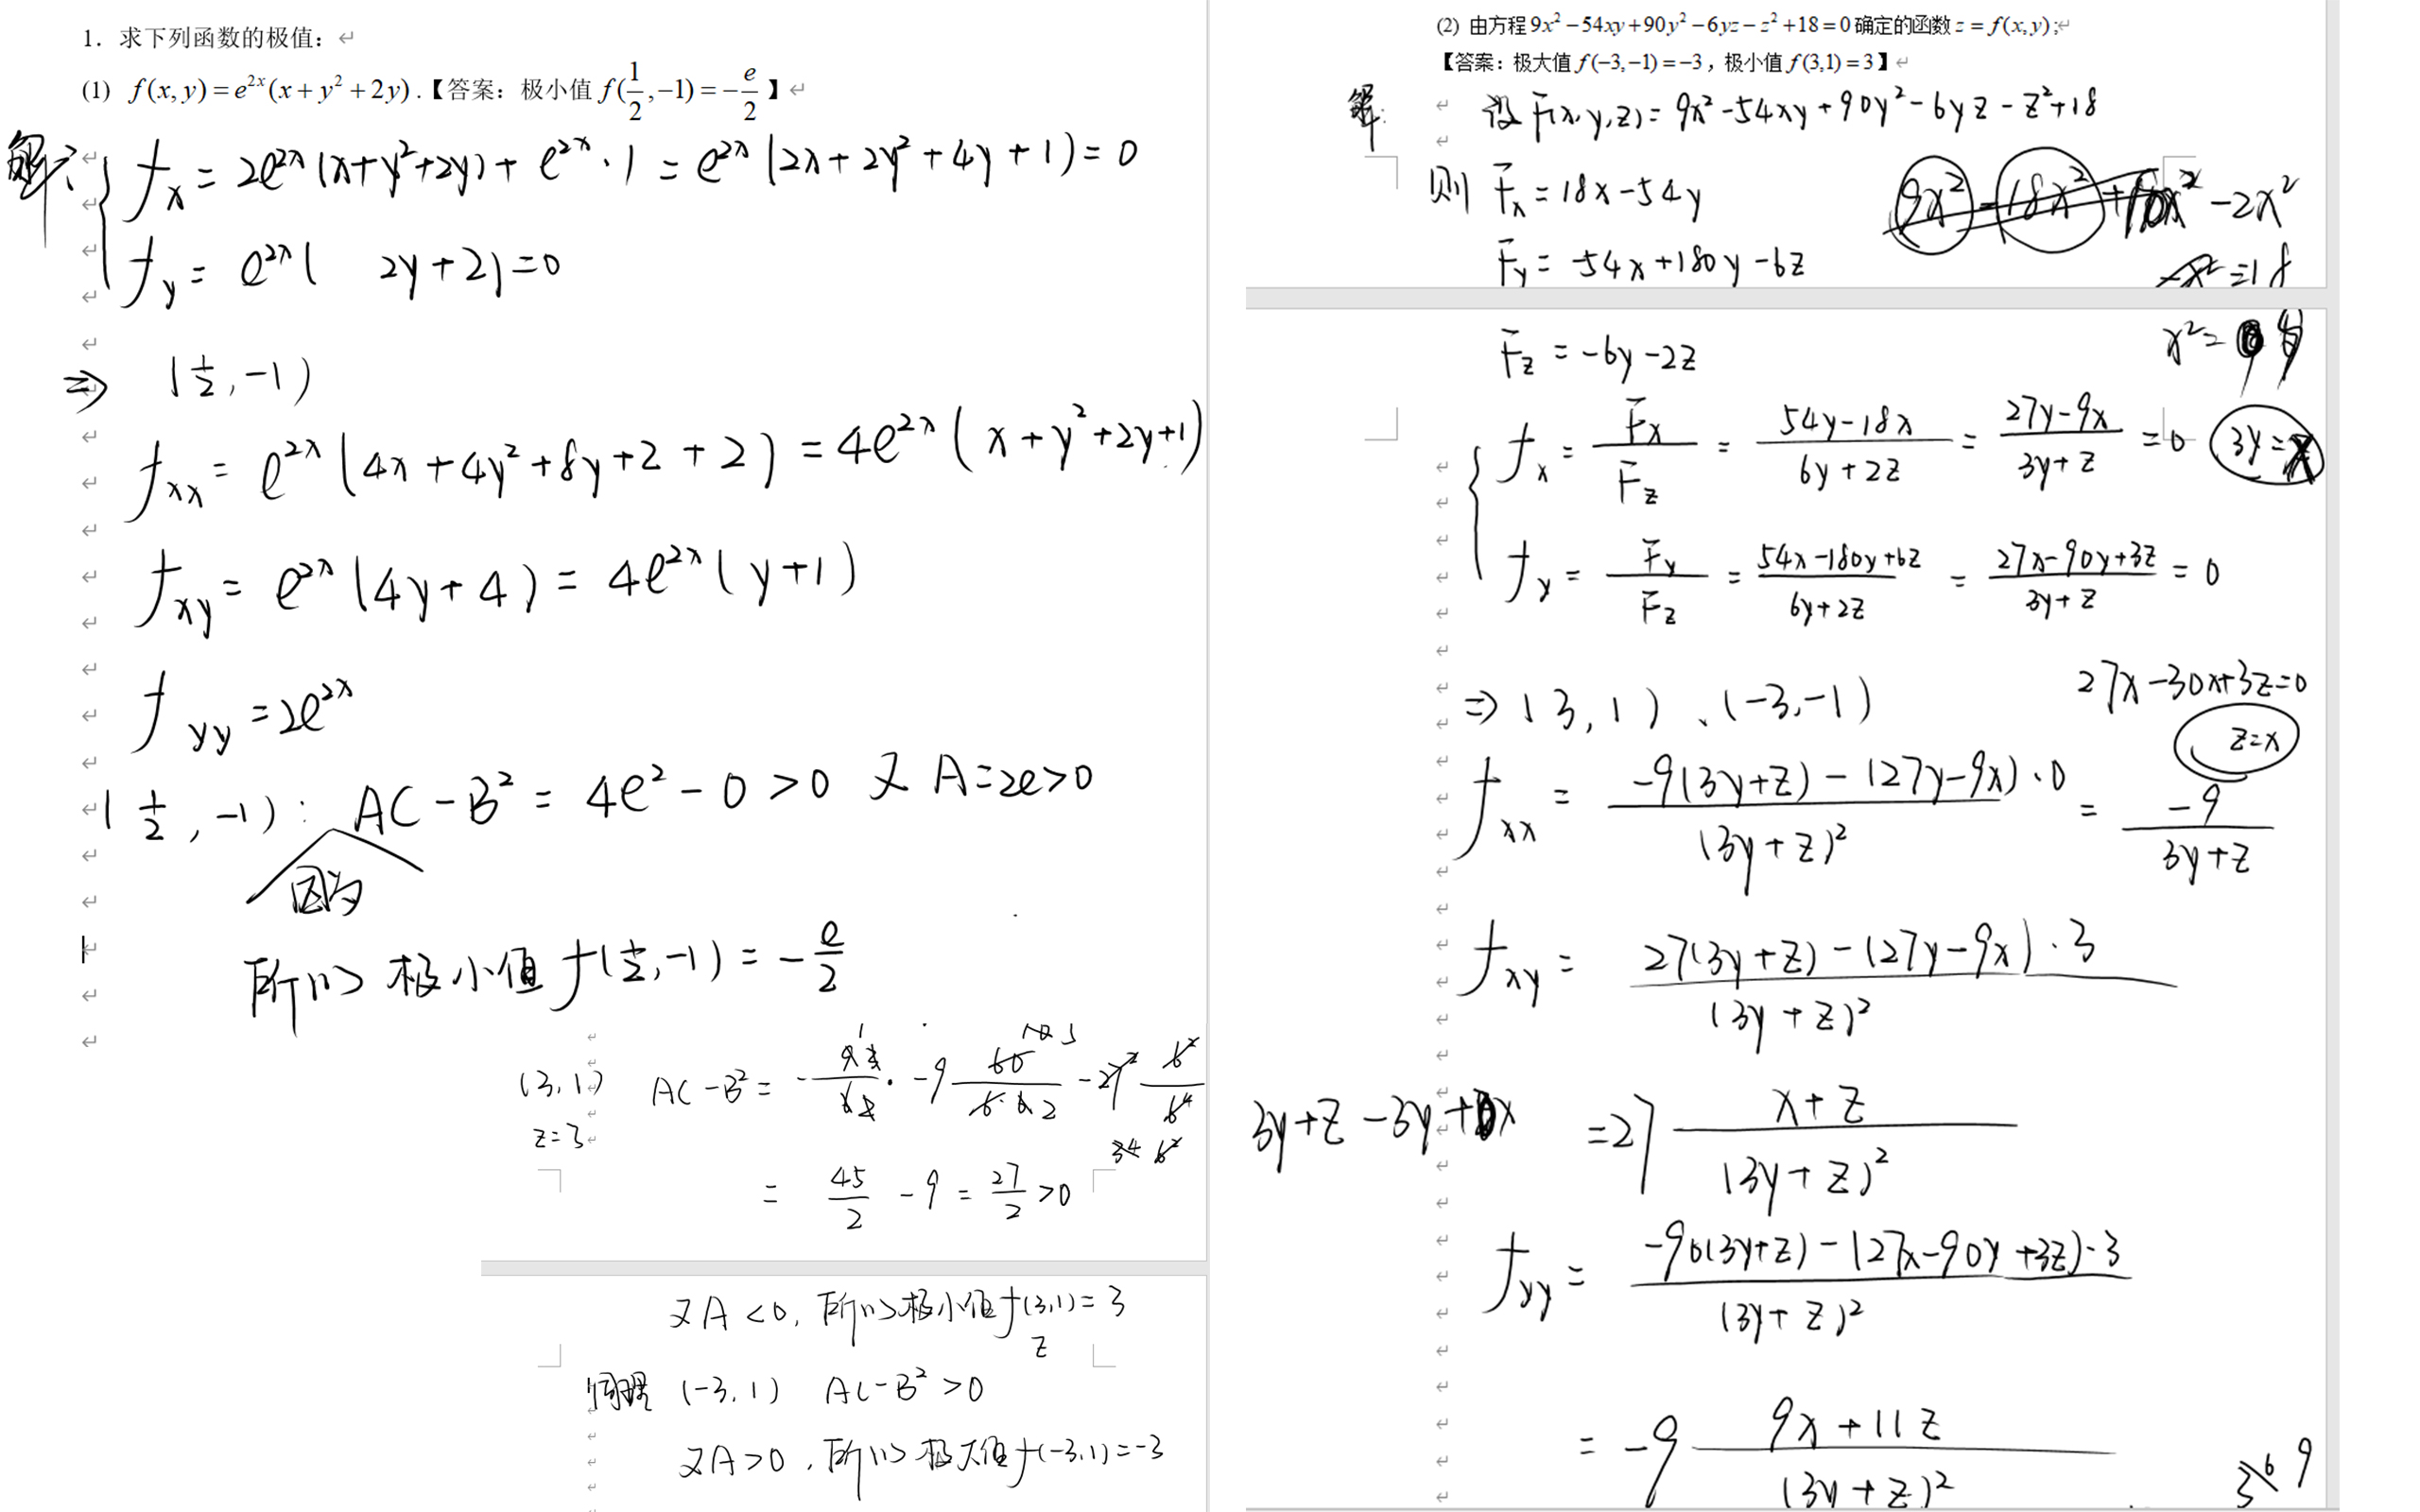 1. 求下列函数的极值：
(1) f(x,y)=e^{2x}(x+y²+2y).【答案：极小值 f(1/2,-1)=-e/2】
解:
f_x = 2e^{2x}(x+y²+2y)+e^{2x}·1 = e^{2x}(2x+2y²+4y+1)=0
f_y = e^{2x}( 2y+2)=0
⇒ (1/2,-1)
f_xx = e^{2x}(4x+4y²+8y+2+2) = 4e^{2x}(x+y²+2y+1)
f_xy = e^{2x}(4y+4) = 4e^{2x}(y+1)
f_yy = 2e^{2x}
(1/2,-1): AC-B² = 4e²-0>0 又 A=2e>0
因为
所以 极小值 f(1/2,-1) = -e/2
(3,1) AC-B² =
z=3
= 45/2 - 9 = 27/2 >0
又A<0, 所以极小值 f(3,1)=3
z
同理 (-3,1) AC-B²>0
又A>0, 所以极大值 f(-3,1)=-3
(2) 由方程 9x²-54xy+90y²-6yz-z²+18=0 确定的函数 z=f(x,y);
【答案：极大值 f(-3,-1)=-3，极小值 f(3,1)=3】
解:
设 F(x,y,z)= 9x²-54xy+90y²-6yz-z²+18
则 F_x = 18x-54y
9x² - 18x² + 10x² -2x²
F_y = -54x+180y-6z
-x²=18
F_z = -6y-2z
x²= 9
f_x = F_x/F_z = (54y-18x)/(6y+2z) = (27y-9x)/(3y+z) =0
3y=x
f_y = F_y/F_z = (54x-180y+6z)/(6y+2z) = (27x-90y+3z)/(3y+z) = 0
27x-30x+3z=0
⇒ (3,1)、(-3,-1)
z=x
f_xx = (-9(3y+z)-(27y-9x)·0)/(3y+z)² = -9/(3y+z)
f_xy = (27(3y+z)-(27y-9x)·3)/(3y+z)²
3y+z-3y+x
=27 (x+z)/(3y+z)²
f_yy = (-90(3y+z)-(27x-90y+3z)·3)/(3y+z)²
= -9 (9x+11z)/(3y+z)²